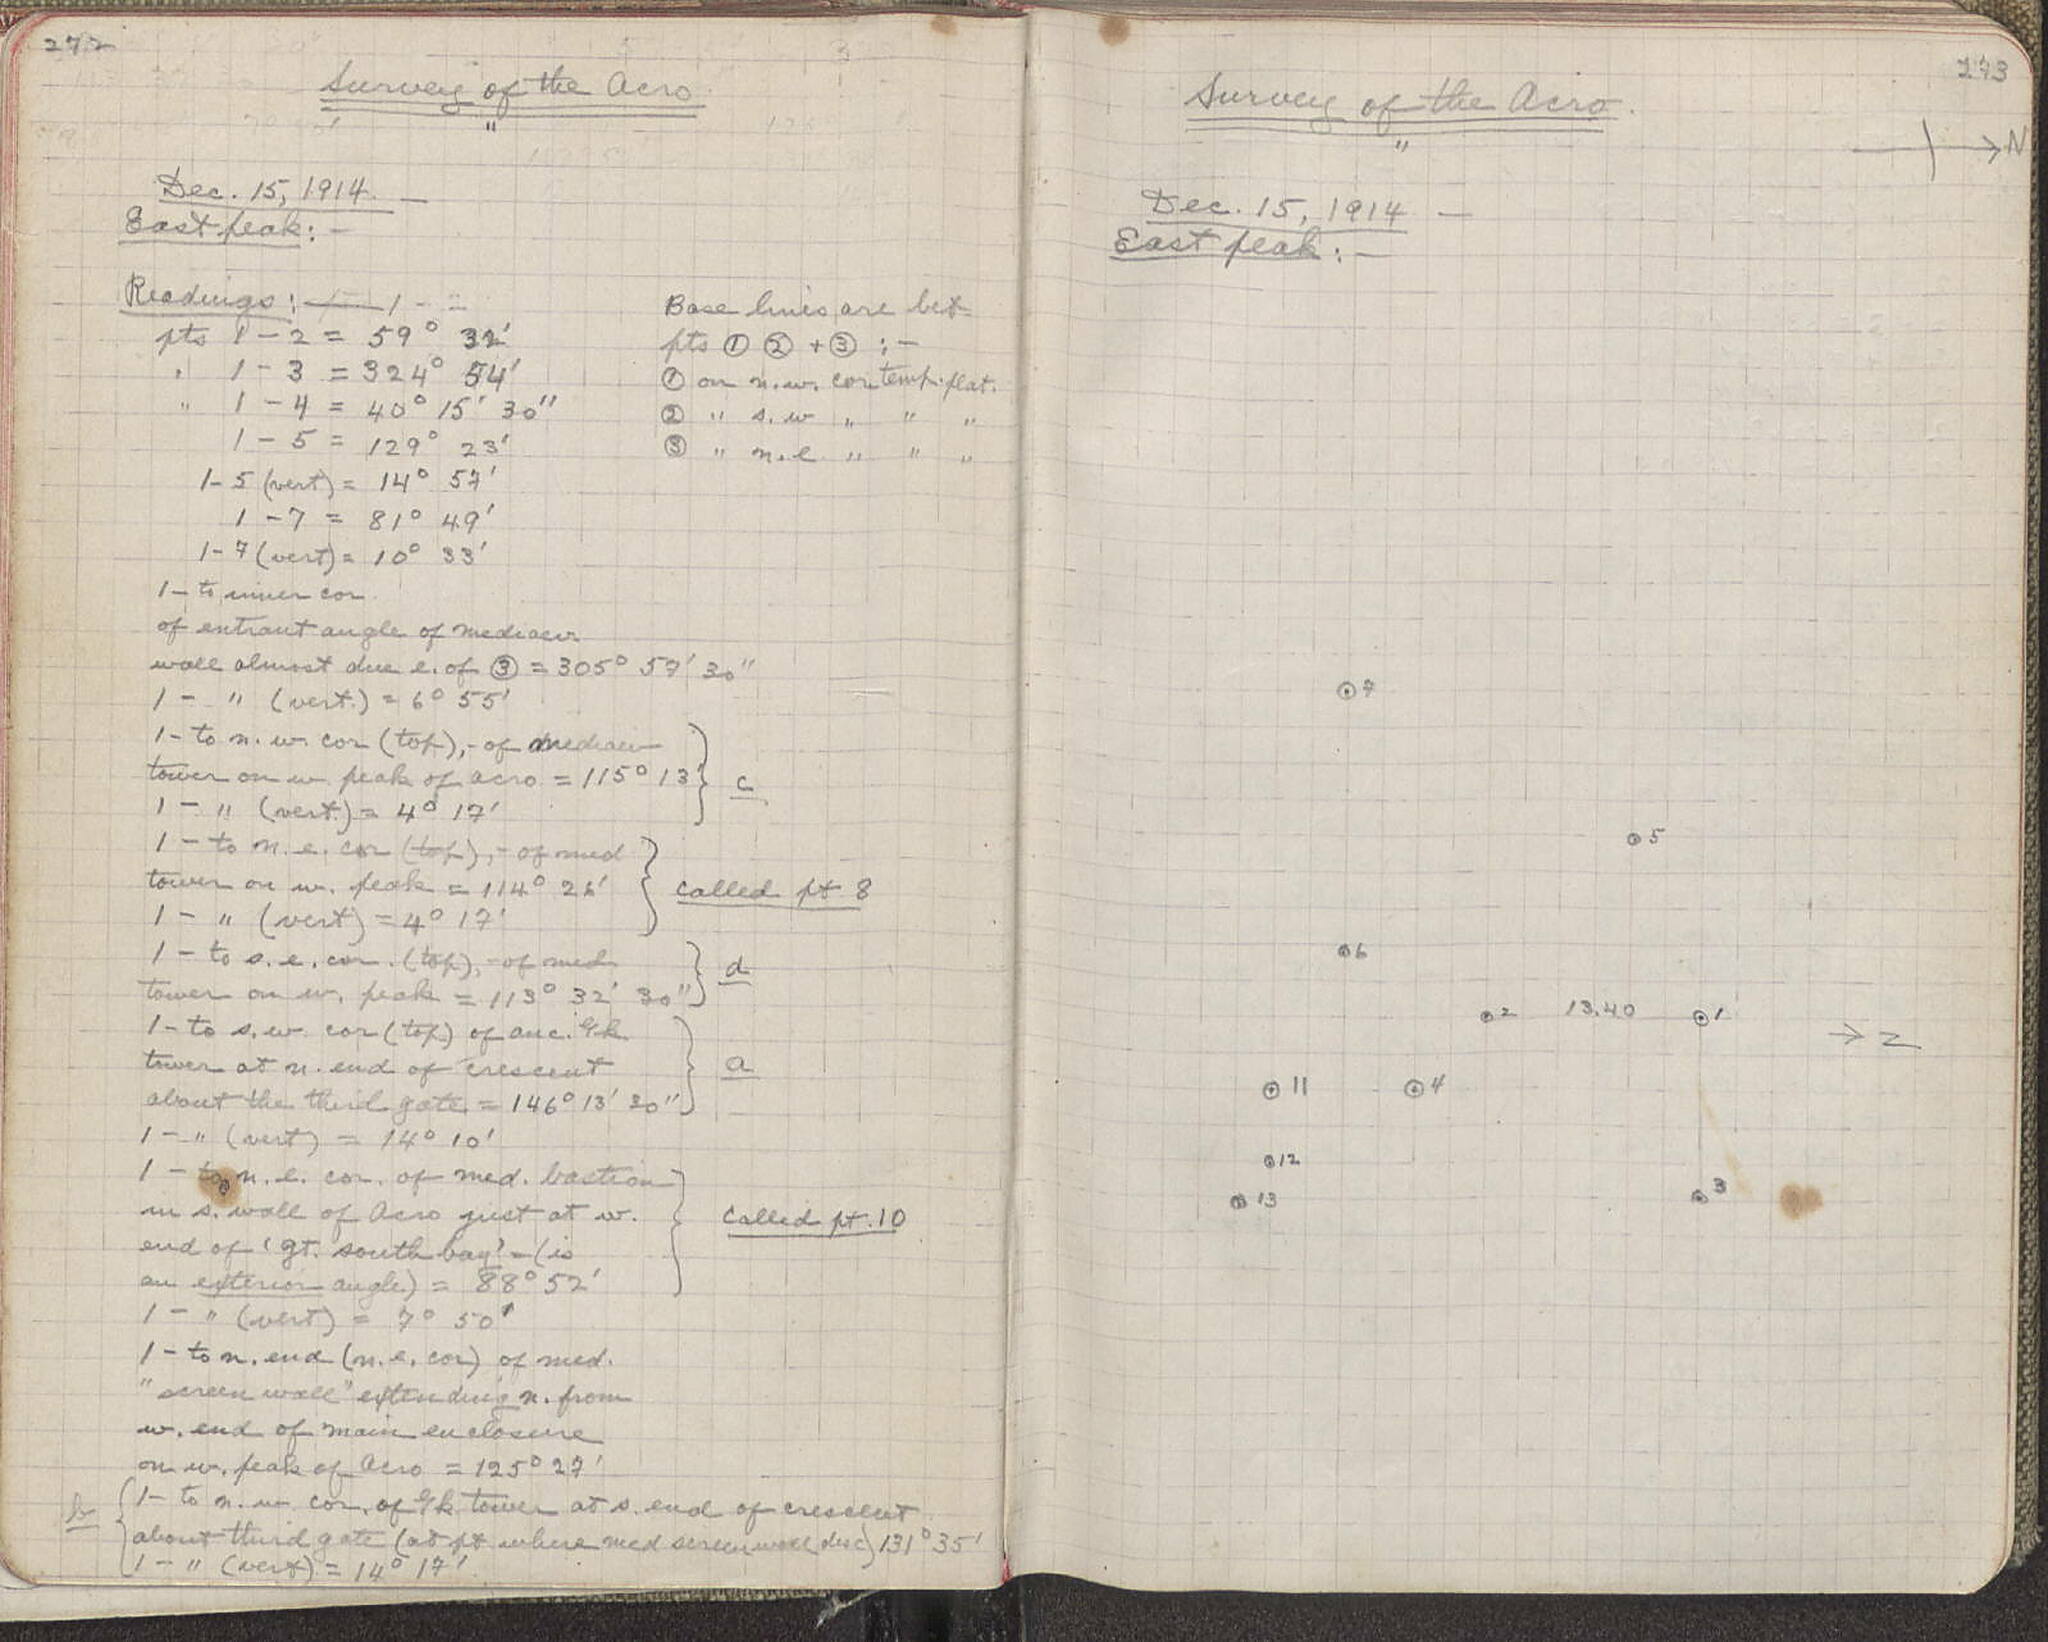 272
Survey of the Acro
"
Dec. 15, 1914. —
East peak: —
Readings: — 1 - "
pts 1 - 2 = 59° 32'
" 1 - 3 = 324° 54'
" 1 - 4 = 40° 15' 30"
1 - 5 = 129° 23'
1 - 5 (vert) = 14° 57'
1 - 7 = 81° 49'
1 - 7 (vert) = 10° 33'
1 - to inner cor
of entrant angle of mediaev
wall almost due e. of ③ = 305° 57' 30"
1 - " (vert.) = 6° 55'
1 - to n.w. cor (top), - of mediaev
tower on w. peak of acro = 115° 13' } c
1 - " (vert.) = 4° 17'
1 - to n.e. cor (top), - of med
tower on w. peak = 114° 26' } called pt 8
1 - " (vert) = 4° 17'
1 - to s.e. cor. (top), - of med } d
tower on w. peak = 113° 32' 30"
1 - to s.w. cor (top) of anc. Gk.
tower at n. end of crescent } a
about the third gate = 146° 13' 30"
1 - " (vert) = 14° 10'
1 - to n.e. cor. of med. bastion
in s. wall of Acro just at w. } called pt. 10
end of 'gt. south bay' - (is
an exterior angle) = 88° 52'
1 - " (vert) = 7° 50'
1 - to n. end (n.e. cor) of med.
"screen wall" extending n. from
w. end of main enclosure
on w. peak of Acro = 125° 27'
b { 1 - to n.w. cor. of Gk tower at s. end of crescent
about third gate (at pt where med screen wall disc) 131° 35'
1 - " (vert) = 14° 17'
Base lines are bet
pts ① ② + ③ : —
① on n.w. cor. temp. plat.
② " s.w " " "
③ " n.e. " " "
273
Survey of the Acro.
"
N
Dec. 15, 1914 —
East peak: —
7
5
6
2 13.40 1
Z
11 4
12
13 3